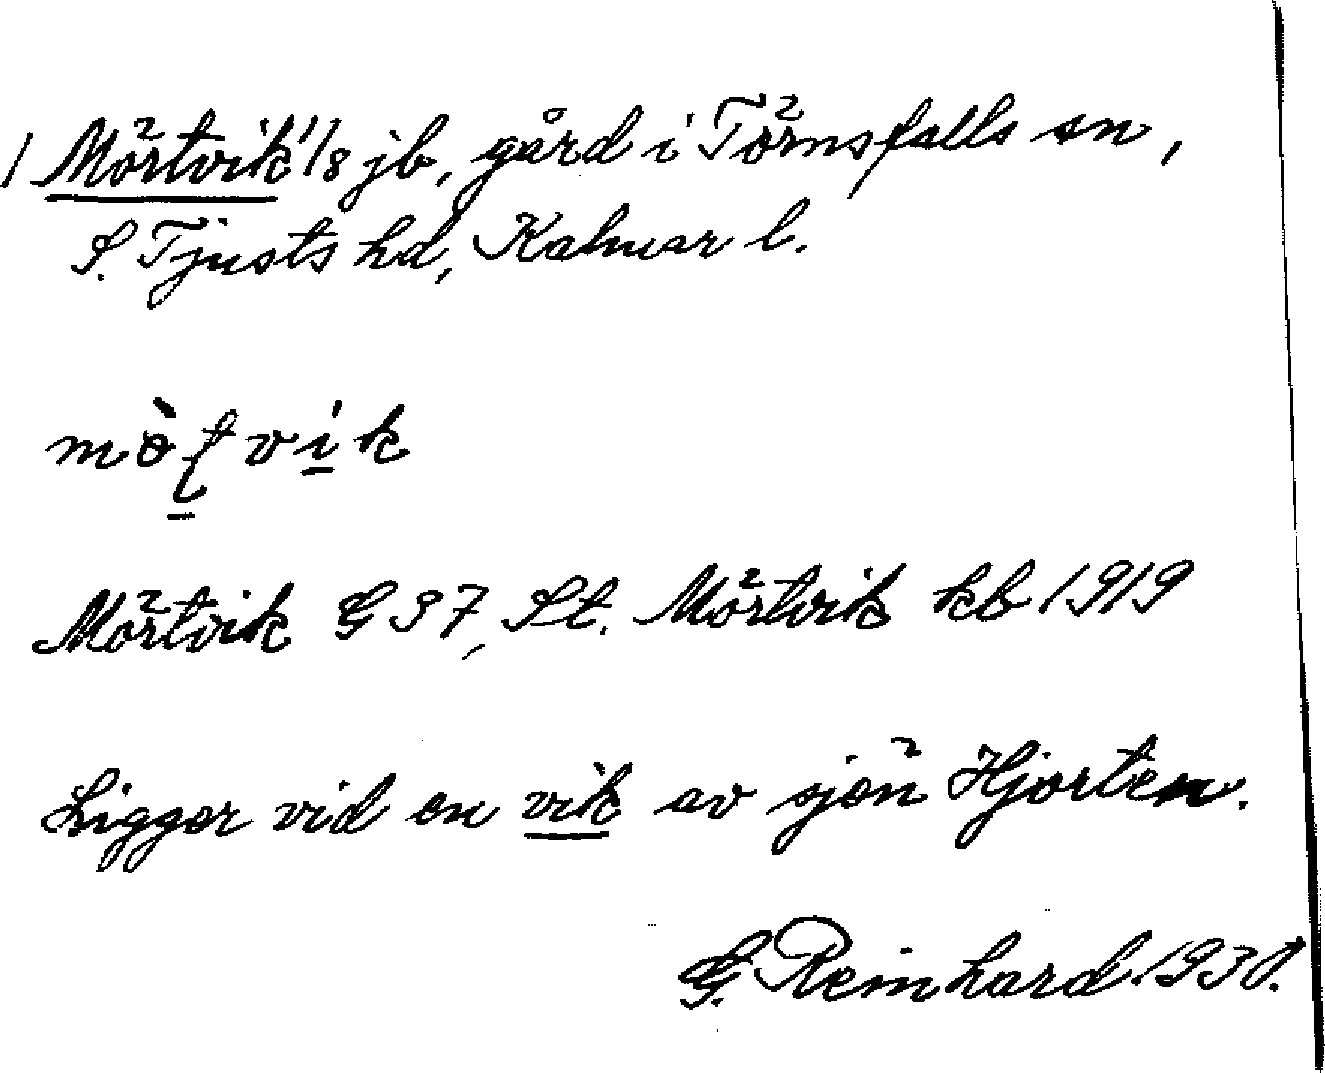 / Mörtvik 1/8 jb, gård i Törnsfalls sn,
S. Tjusts hd, Kalmar l.
mòʈvik
Mörtvik G 37, St. Mörtvik kb 1919
Ligger vid en vik av sjön Hjorten.
G. Reinhard. 1930.